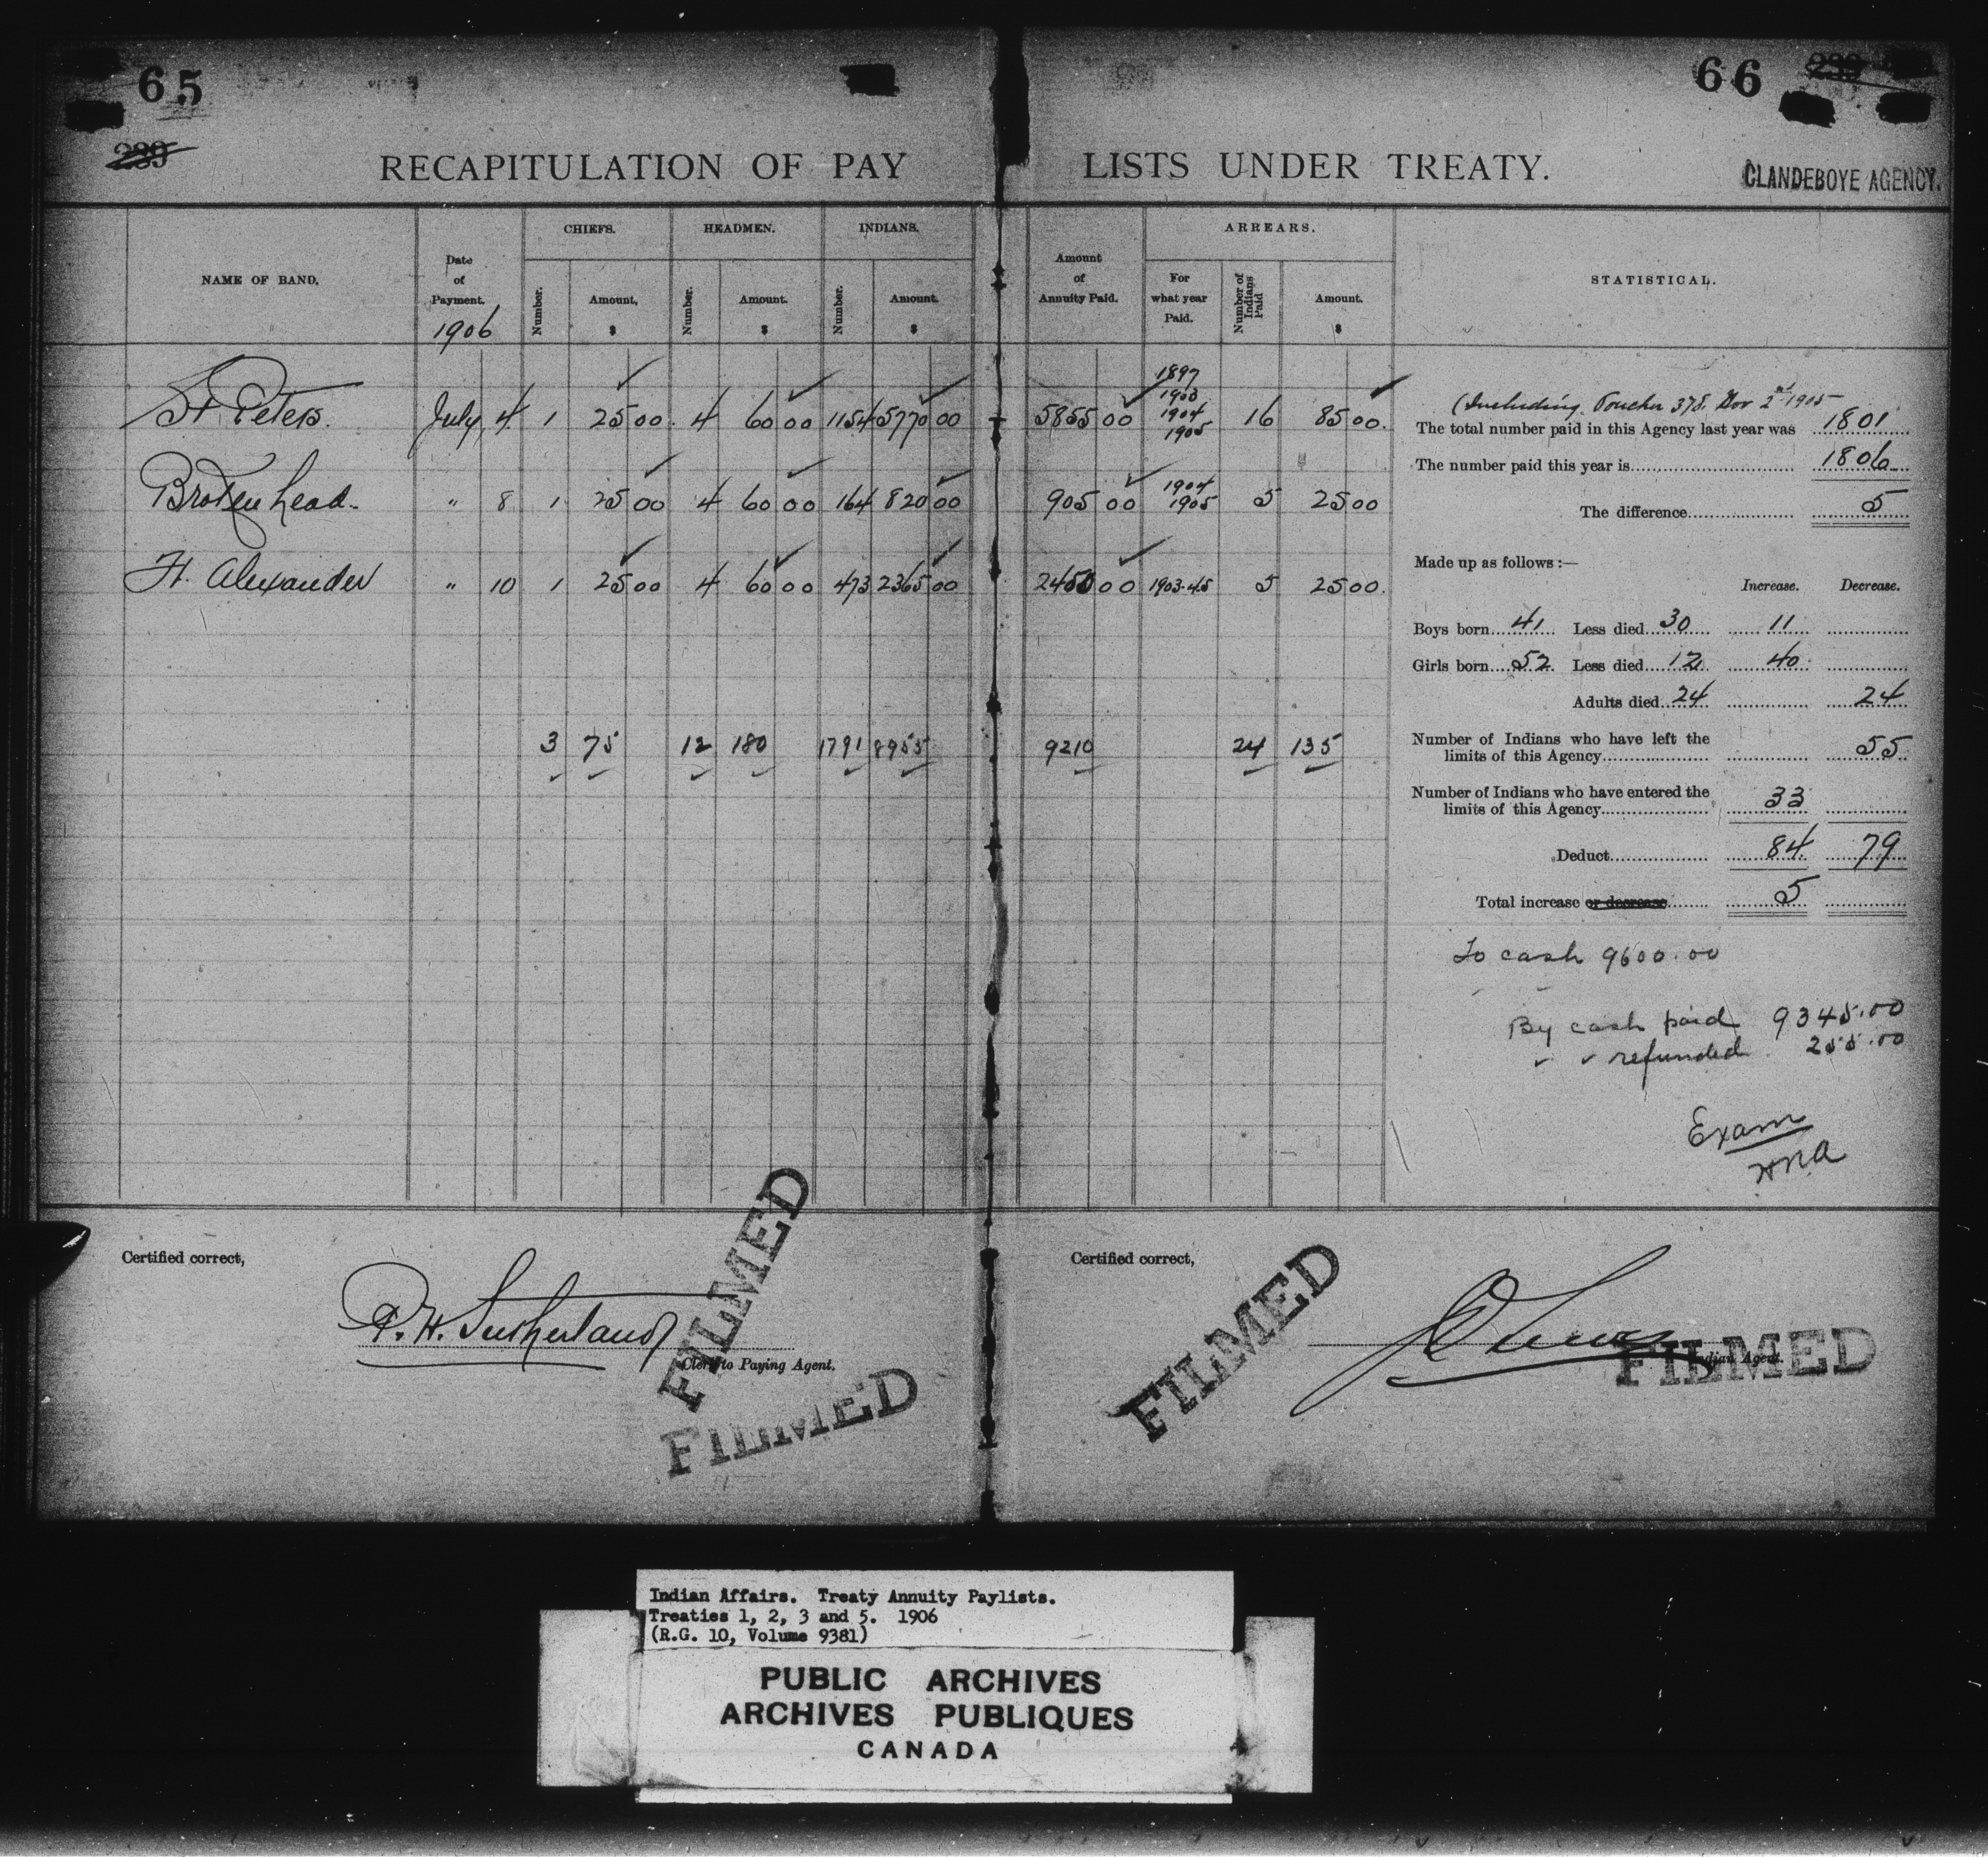 65
66
239
239
RECAPITULATION OF PAY LISTS UNDER TREATY.
CLANDEBOYE AGENCY.
NAME OF BAND.
Date of Payment.
1906
CHIEFS.
Number.
Amount,
$
HEADMEN.
Number.
Amount.
$
INDIANS.
Number.
Amount.
$
Amount of Annuity Paid.
ARREARS.
For what year Paid.
Number of Indians Paid
Amount.
$
STATISTICAL.
St Peters. July 4 1 25 00 4 60 00 1154 5770 00 5855 00 1897 1903 1904 1905 16 85 00.
Brokenhead. " 8 1 25 00 4 60 00 164 820 00 905 00 1904 1905 5 25 00
Ft. Alexander " 10 1 25 00 4 60 00 473 2365 00 2450 00 1903.4.5 5 25 00.
3 75 12 180 1791 8955 9210 24 135
(Including Voucher 378. Nov 2nd 1905
The total number paid in this Agency last year was 1801
The number paid this year is 1806
The difference 5
Made up as follows:—
Increase. Decrease.
Boys born 41 Less died 30 11
Girls born 52 Less died 12 40
Adults died 24 24
Number of Indians who have left the
limits of this Agency 55
Number of Indians who have entered the
limits of this Agency 33
Deduct 84 79
Total increase or decrease 5
To cash 9600.00
By cash paid 9345.00
" " refunded 255.00
Exam
HRA
Certified correct,
R. H. Sutherland
Clerk to Paying Agent.
Certified correct,
Indian Agent.
FILMED
FILMED
FILMED
FILMED
Indian Affairs. Treaty Annuity Paylists.
Treaties 1, 2, 3 and 5. 1906
(R.G. 10, Volume 9381)
PUBLIC ARCHIVES
ARCHIVES PUBLIQUES
CANADA